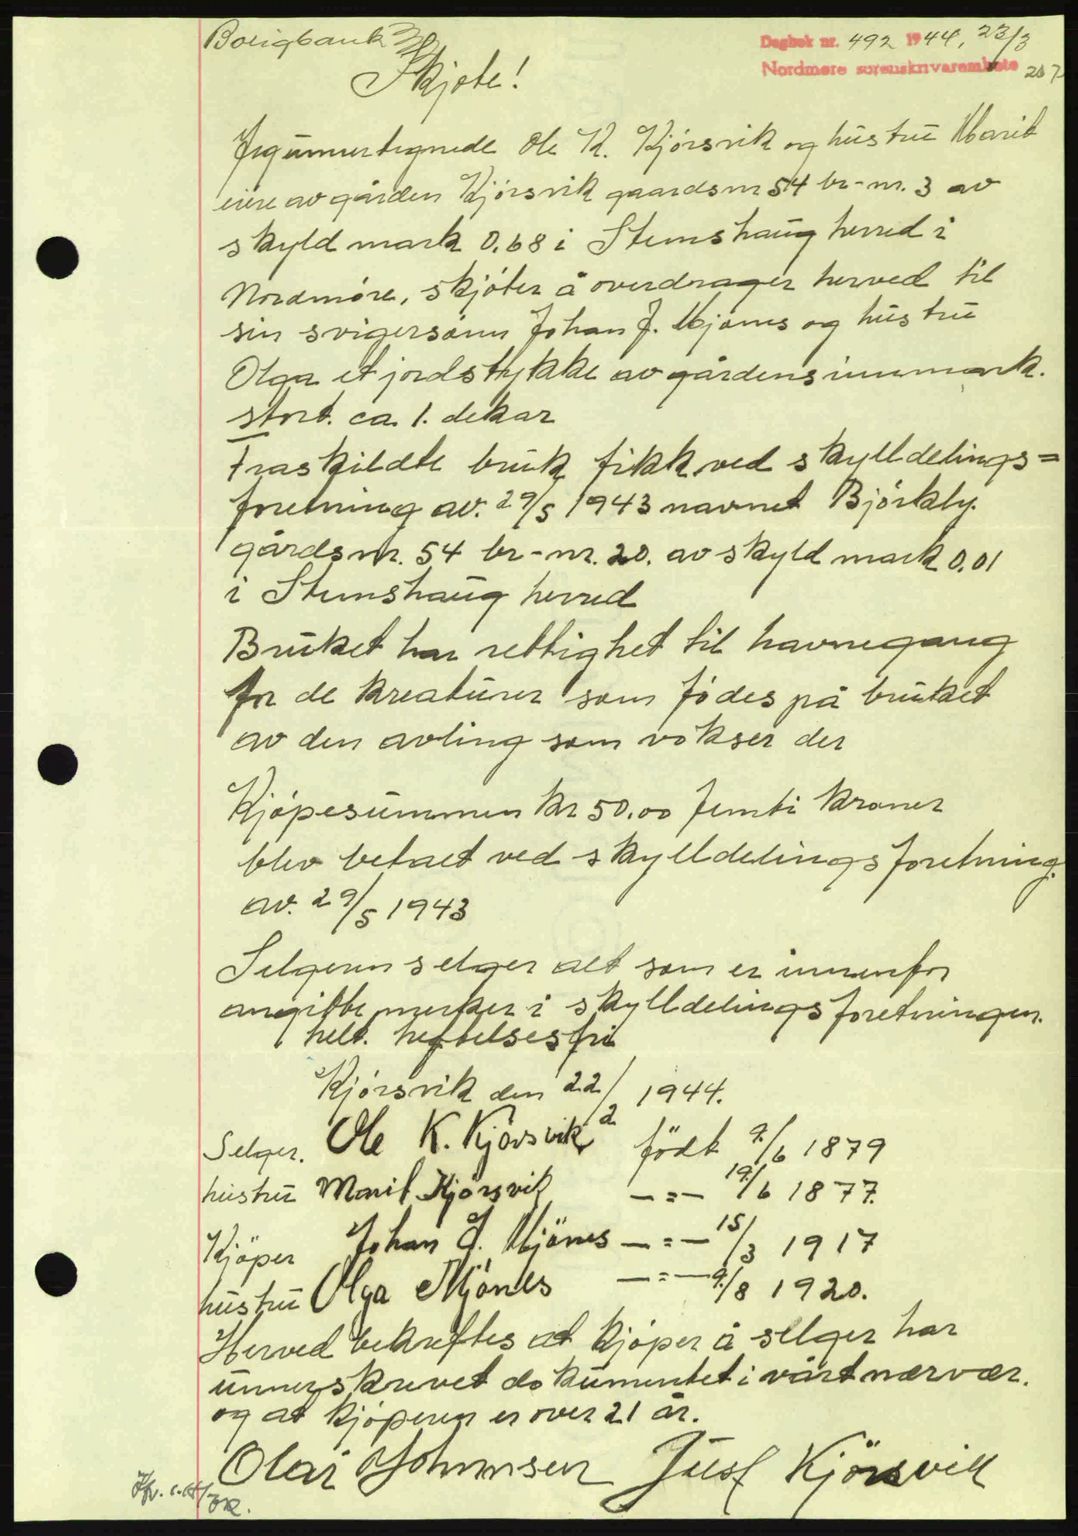 Boligbank
Dagbok nr. 492 1944, 23/3
Nordmøre sorenskrivarembete
207
Skjøte!
Jeg unnertegnede Ole K. Kjörsvik og hüstrü Marit
eiere av gården Kjörsvik gaardsnr 54 br-nr. 3 av
skyld mark 0.68 i Stemshaüg herred i
Nordmøre, skjöter å overdrager herved til
sin svigersönn Johan J. Mjönes og hüstrü
Olga et jordstykke av gårdens innmark.
stort. ca. 1. dekar
Fraskildte brük fikk ved skylldelings=
foretning av. 29/5 1943 navnet Björkly.
gårdsnr. 54 br-nr. 20. av skyld mark 0.01
i Stemshaüg herred
Brüket har rettighet til havnegang
for de kreatürer som födes på brüket
av den avling som vokser der
Kjöpesümmen kr 50.00 femti kroner
blev betalt ved skylldelingsforetning.
av. 29/5 1943
Selgeren selger alt som er innenfor
angitte merker i skylldelingsforetningen.
helt. heftelsesfri
Kjörsvik den 22/2 1944.
Selger. Ole K. Kjörsvik födt 9/6 1879
hüstrü Marit Kjörsvik —=— 19/6 1877.
Kjöper Johan J. Mjönes —=— 15/3 1917
hüstrü Olga Mjönes —=— 9/8 1920.
Herved bekreftes at kjöper å selger har
ünnerskrevet dokümentet i vårt nærvær.
og at kjöperen er over 21 år.
Olav Johnnsen Jüsf Kjörsvik